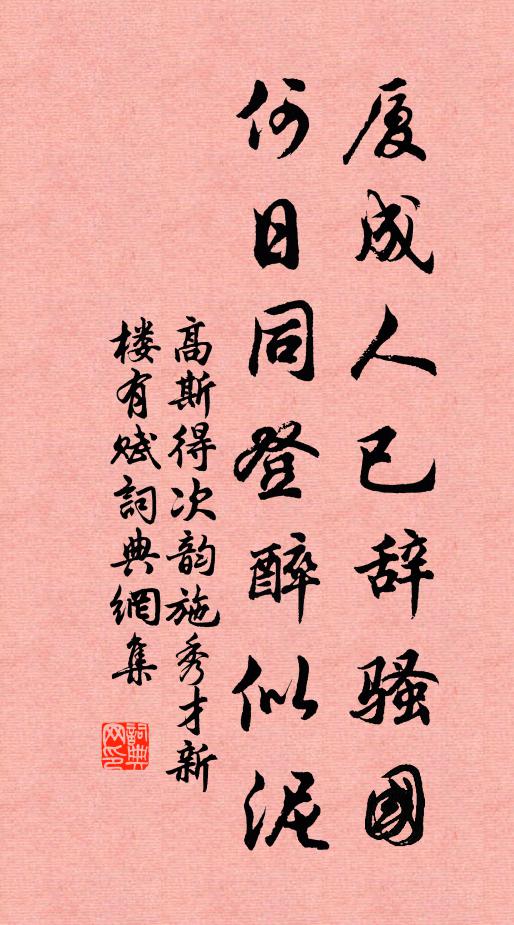 厦成人已辞骚國
何日同登醉似泥
高斯得次韵施秀才新
楼有赋詞典網集
詞典網印